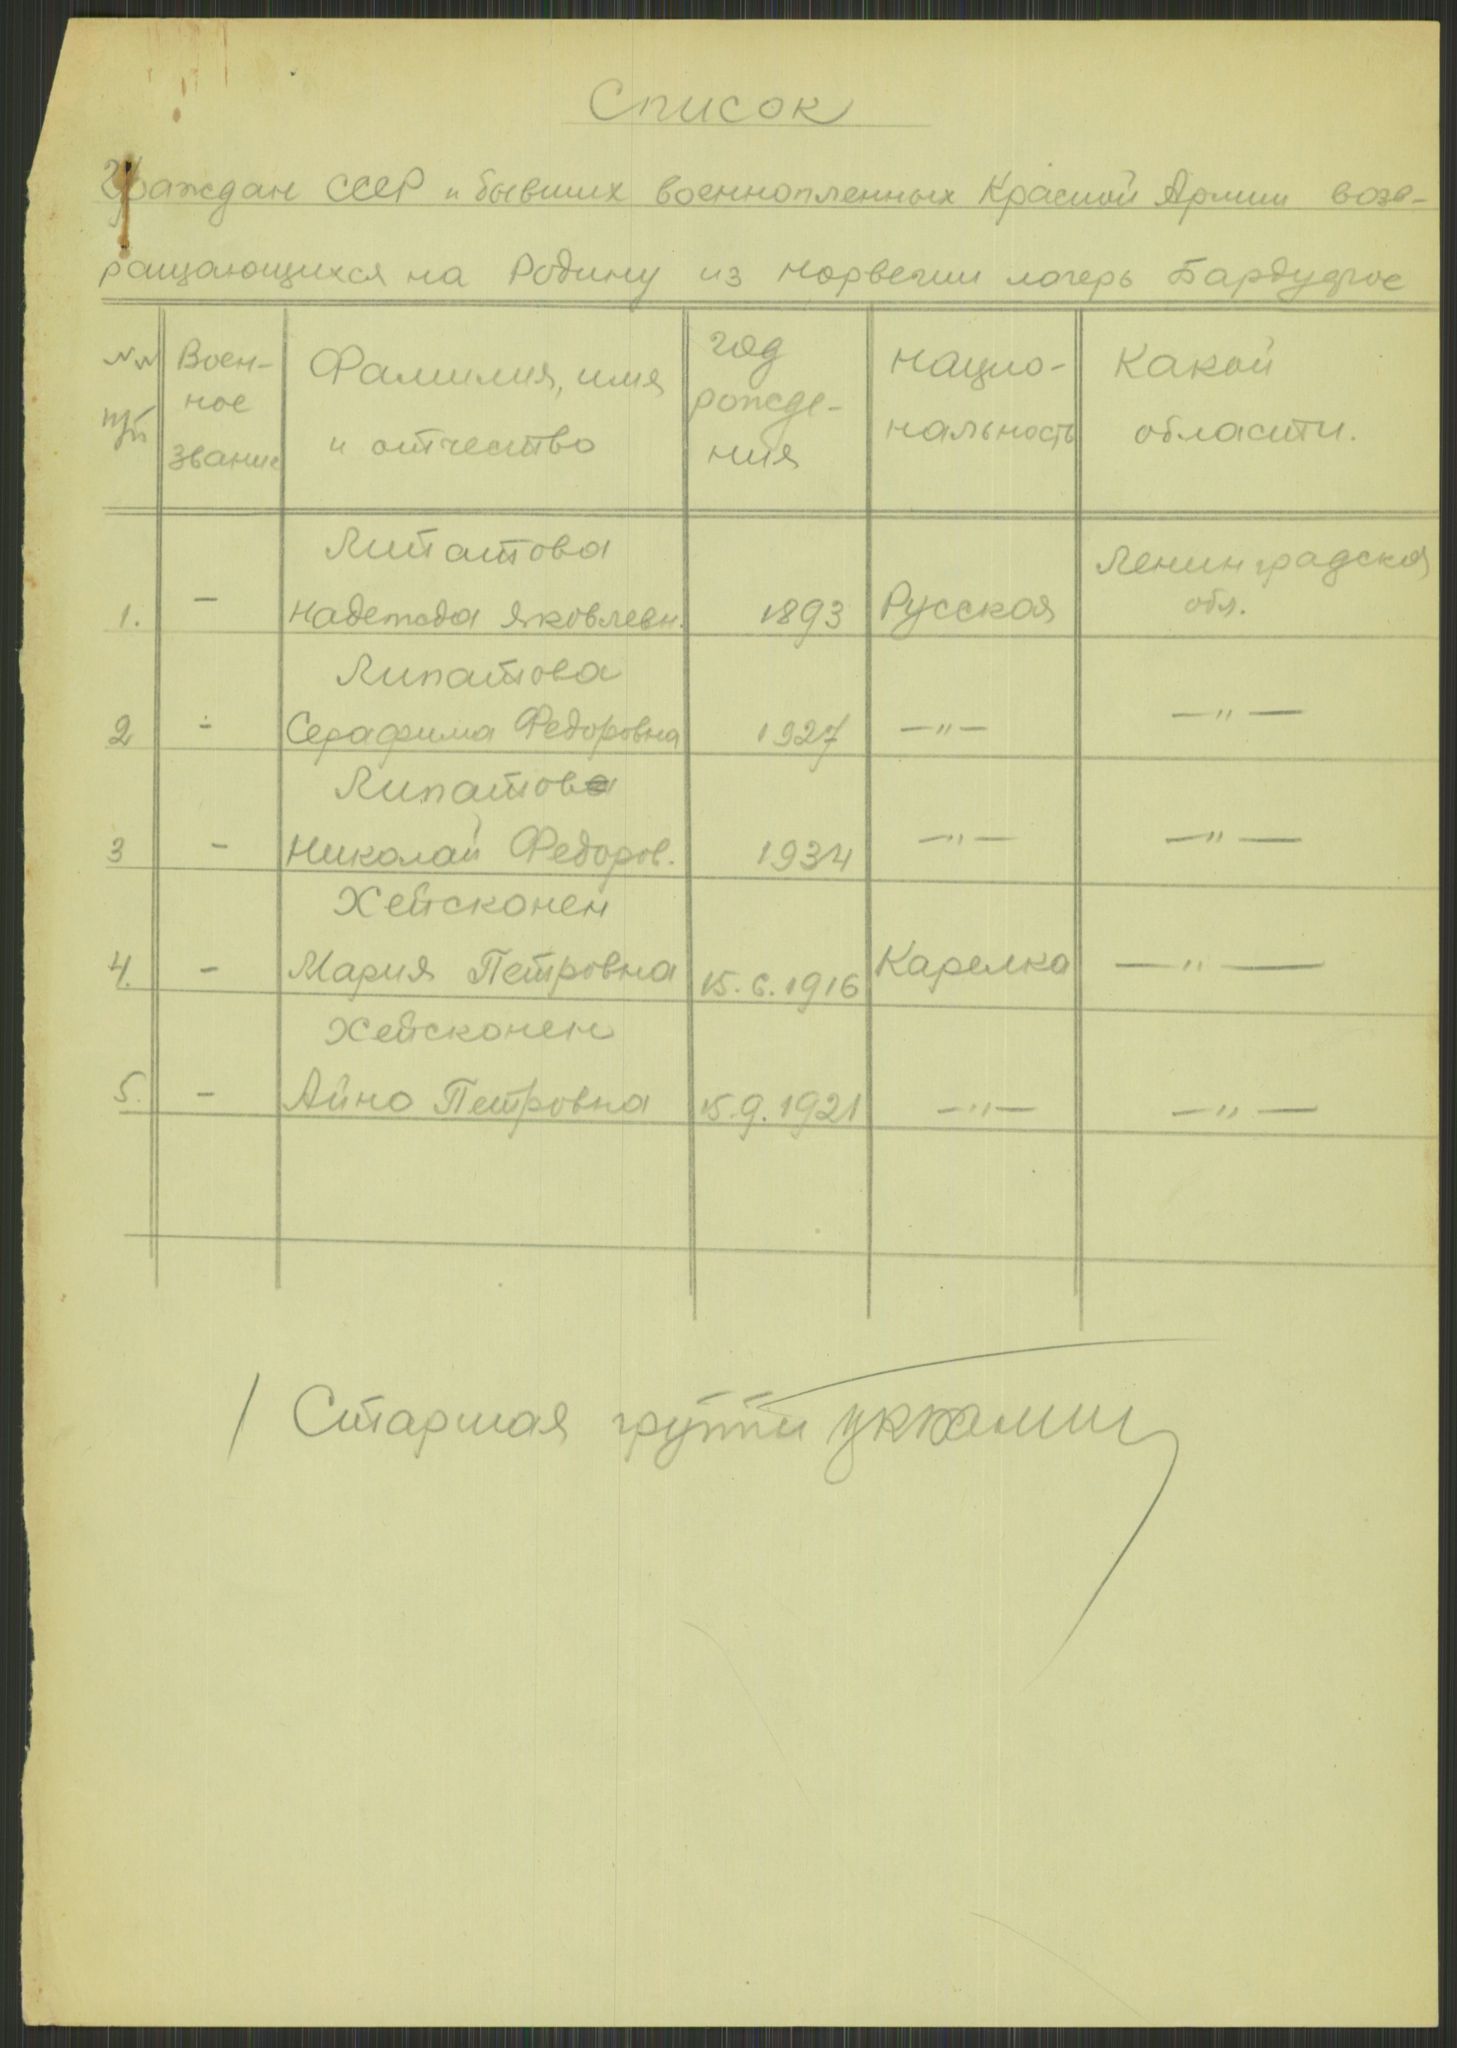 Список
Граждан СССР и бывших военнопленных Красной Армии возв-
ращающихся на Родину из Норвегии лагерь Бардуфос
№№ п/п | Воен-ное звание | Фамилия, имя и отчество | год рожде-ния | Нацио-нальность | Какой области.
Липатова
1. – Надежда Яковлевн. 1893 Русская Ленинградская обл.
Липатова
2 – Серафима Федоровна 1927 —"— —"—
Липатов
3 – Николай Федоров. 1934 —"— —"—
Хейсконен
4. – Мария Петровна 15.6.1916 Карелка —"—
Хейсконен
5. – Айно Петровна 15.9.1921 —"— —"—
/ Старшая группы